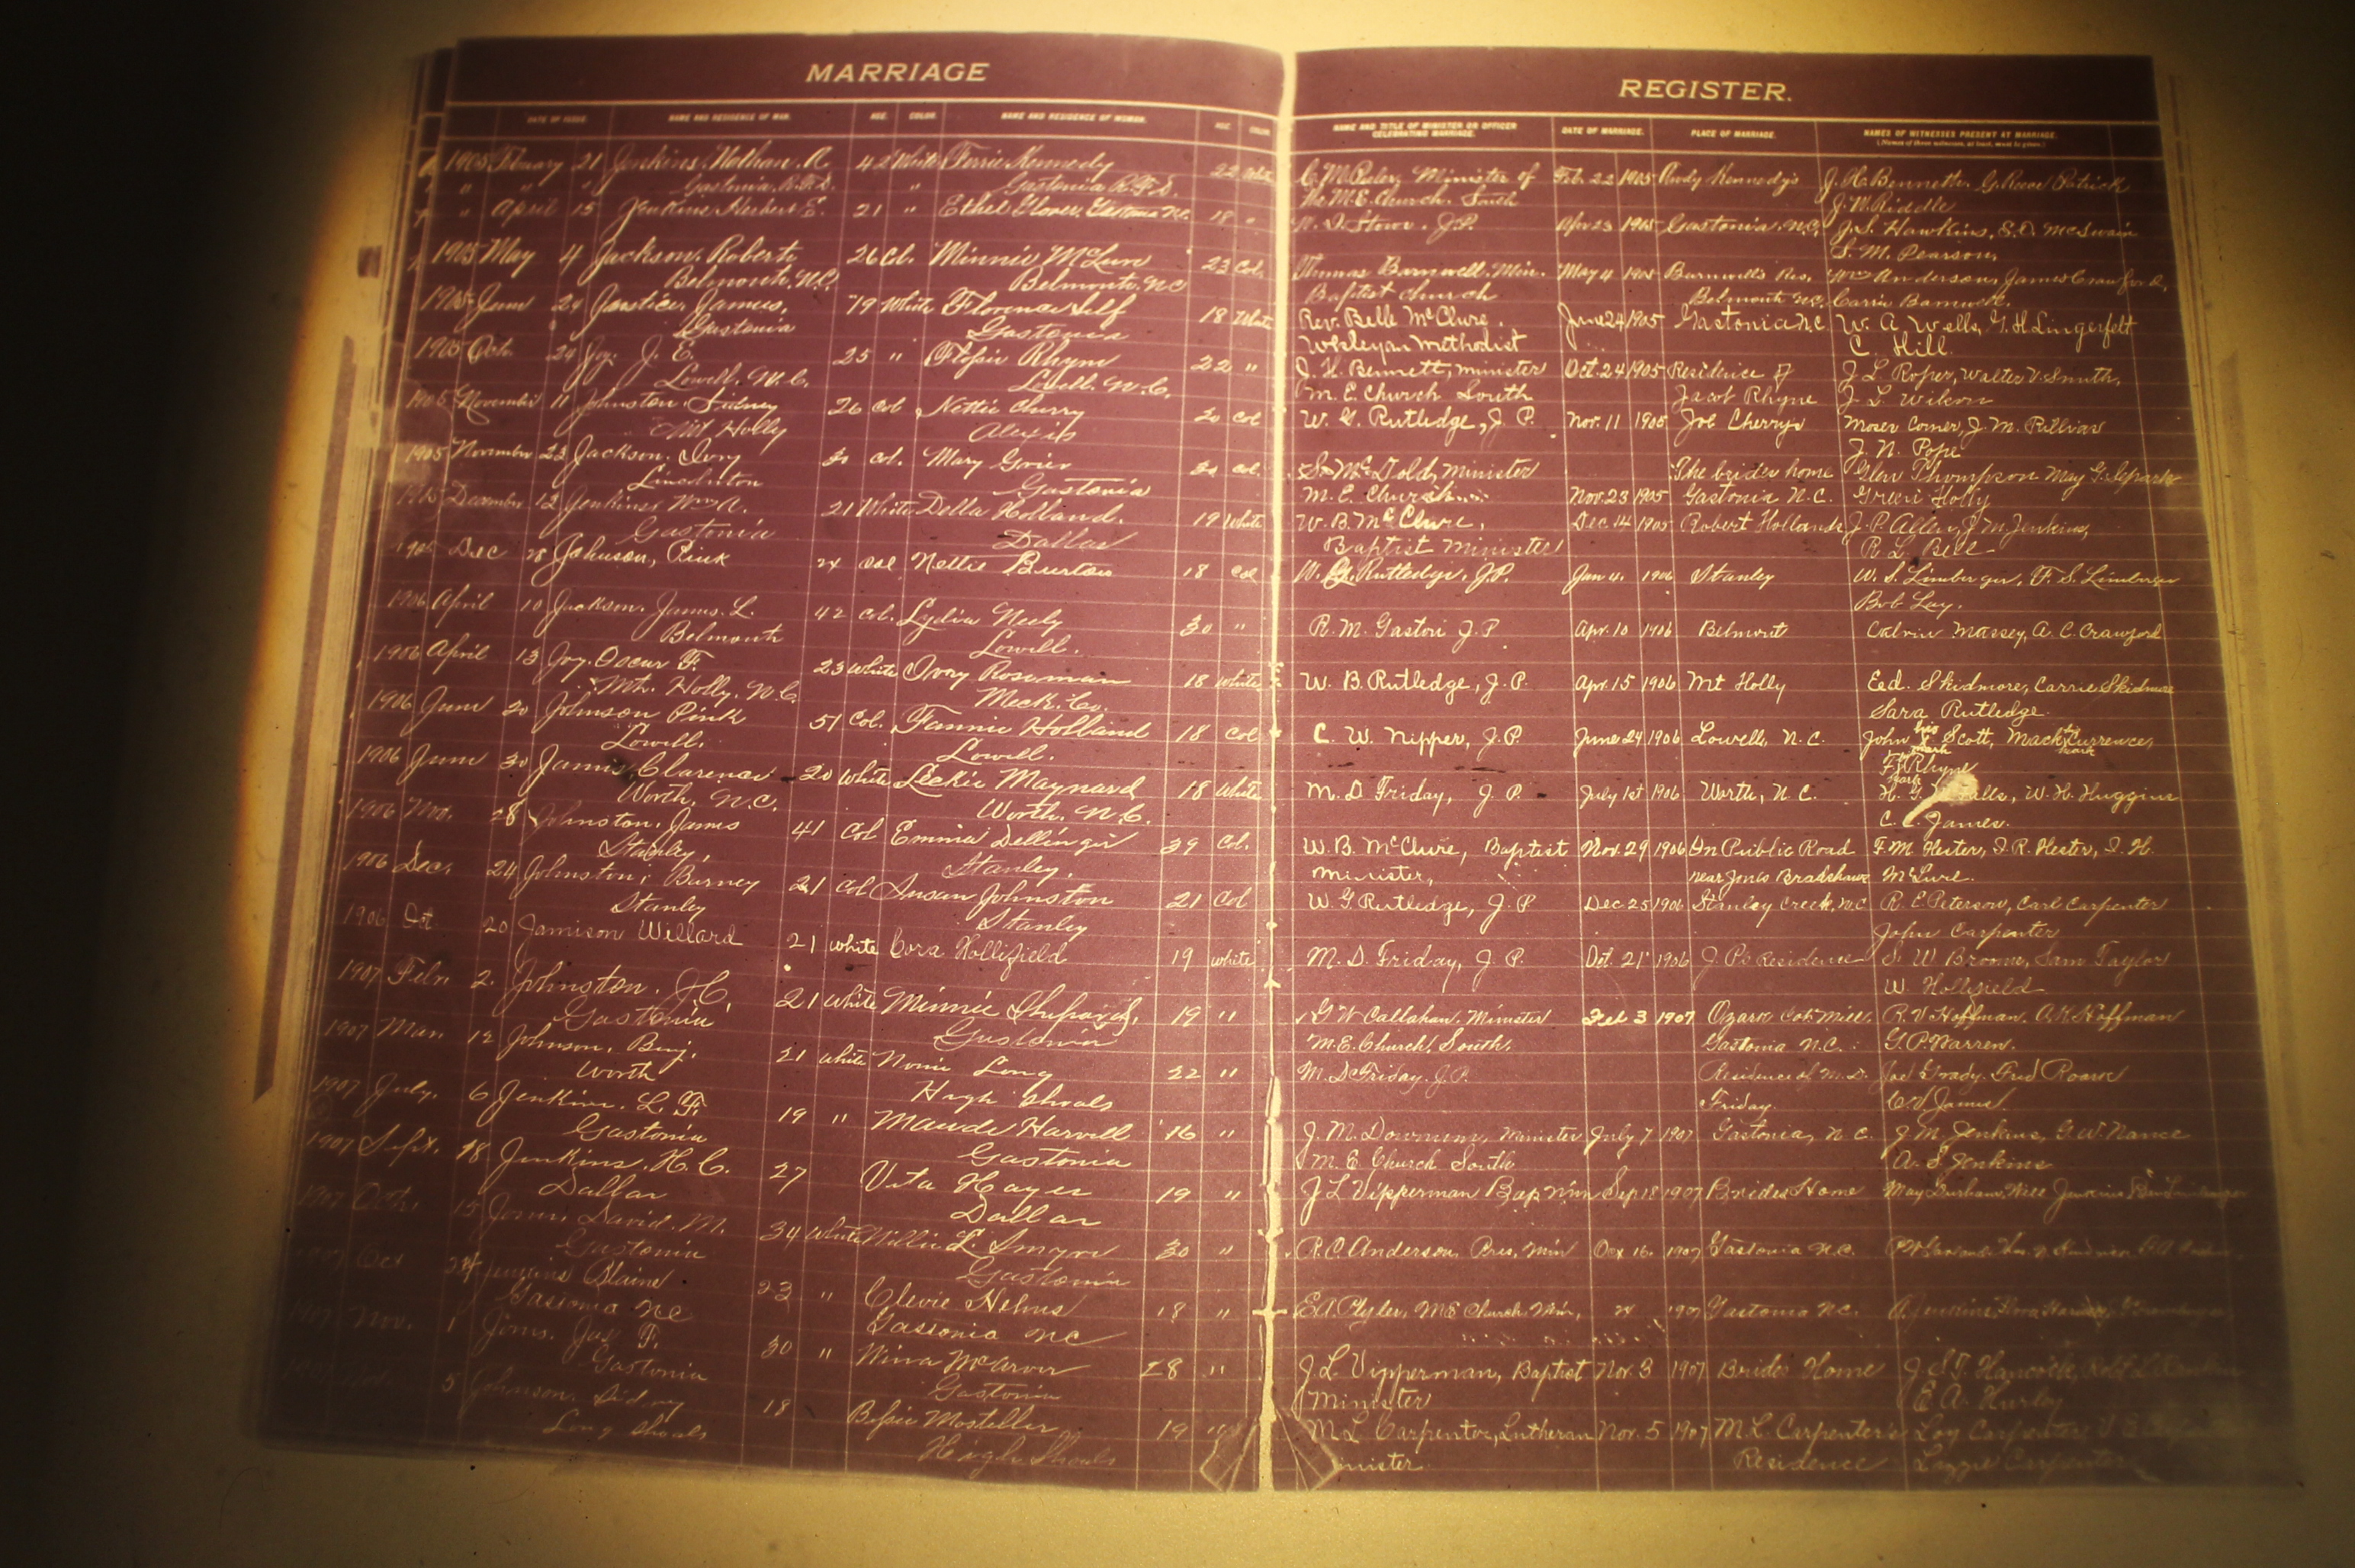 MARRIAGE
DATE OF ISSUE. NAME AND RESIDENCE OF MAN. AGE. COLOR. NAME AND RESIDENCE OF WOMAN. AGE. COLOR.
1905 February 21 Jenkins, Nathan A. 42 White Kennedy 22 White
" " " Gastonia R.F.D. " Gastonia R.F.D.
" April 15 Jenkins Herbert E. 21 " Ethel Glover, Gastonia N.C. 18 "
1905 May 4 Jackson, Robert 26 Col. Minnie 23 Col.
Belmont, N.C. Belmont, N.C.
1905 June 24 Justice, James, 19 White Florence Self 18 White
Gastonia Gastonia
1905 Oct. 24 Joy. J. E. 25 " Rhyne 22 "
Lowell, N.C. Lowell, N.C.
1905 November 11 Johnston, Sidney 26 Col Nettie 20 Col
Mt Holly Alexis
1905 November 23 Jackson, Ivey col. Mary Grier col.
Lincolnton Gastonia
1905 December 12 Jenkins, Wm A. 21 White Della Holland. 19 White
Gastonia Dallas
1905 Dec 28 Johnson, Pink col Nettie Burton 18 Col
1906 April 10 Jackson, James. L. 42 Col. Lydia Neely 30 "
Belmont Lowell.
1906 April 13 Joy, Oscar F. 23 White Ivey Roseman 18 White
Mt. Holly, N.C. Meck. Co.
1906 June 20 Johnson Pink 51 Col. Fannie Holland 18 Col
Lowell. Lowell.
1906 June 30 James, Clarence 20 White Leckie Maynard 18 White
Worth, N.C. Worth, N.C.
1906 Nov. 28 Johnston, James 41 Col Emma Dellinger 39 Col.
Stanley, Stanley,
1906 Dec. 24 Johnston, Burney 21 Col Susan Johnston 21 Col
Stanley Stanley
1906 Oct. 20 Jamison Willard 21 white Cora Hollifield 19 white
1907 Feb. 2. Johnston, J.C. 21 White Minnie 19 "
Gastonia Gastonia
1907 Mar. 12 Johnson, Benj. 21 White Long 22 "
Worth High Shoals
1907 July. 6 Jenkins. L. F. 19 " Maude Harvell 16 "
Gastonia Gastonia
1907 Sept. 18 Jenkins, H.C. 27 Vita Hayes 19 "
Dallas Dallas
1907 Oct. 15 Jones, David. M. 34 White Willie L. Smyre 30 "
Gastonia Gastonia
1907 Oct 24 Jenkins Blaine 23 " Clevie Helms 18 "
Gastonia NC Gastonia NC
1907 Nov. 1 Jones. Jay F. 30 " Nina McArver 28 "
Gastonia Gastonia
5 Johnson. Sidney 18 Bessie Mosteller 19 "
Long Shoals High Shoals
REGISTER.
NAME AND TITLE OF MINISTER OR OFFICER CELEBRATING MARRIAGE. DATE OF MARRIAGE. PLACE OF MARRIAGE. NAMES OF WITNESSES PRESENT AT MARRIAGE.
(Names of three witnesses, at least, must be given.)
Minister of Feb. 22 1905 Kennedy's J. H. Bennett. G. Reece Patrick
the M.E. Church. South J. W. Riddle
N. D. Stowe. J.P. Apr 23 1905 Gastonia. N.C. J. S. Hawkins, S. O. McSwain
S. M. Pearson,
Thomas Barnwell, Min. May 4 1905 Barnwell's Res, Wm Anderson, James Crawford,
Baptist church Belmont N.C. Carrie Barnwell.
Rev. Belle McClure. June 24 1905 Gastonia N.C. W. A. Wells, G. H. Lingerfelt
Wesleyan Methodist C. Hill.
J. H. Bennett, minister Oct. 24 1905 Residence of J. L. Roper, Walter V. Smith,
M. E. Church South Jacob Rhyne J. L. Wilson
W. G. Rutledge, J. P. Nov. 11 1905 Job Cherrys Moser Comer, J. M. Pulliam
J. N. Pope
minister The brides home Glen Thompson May G.
M. E. Church Nov. 23 1905 Gastonia N.C. Holly
W. B. McClure, Dec. 14 1905 Robert Hollands J. P. Allen, J. M. Jenkins,
Baptist Minister R. L. Bell
W. G. Rutledge, J.P. Jan 4. 1906 Stanley W. S. Limberger, F. S. Limberger
Bob Lay.
R. M. Gaston J. P Apr. 10 1906 Belmont Calvin Massey, A. C. Crawford
W. B. Rutledge, J. P. Apr. 15 1906 Mt Holly Ed. Skidmore, Carrie Skidmore
Sara Rutledge.
C. W. Nipper, J. P. June 24 1906 Lowell, N. C. John his mark Scott, Mack his mark Currence,
F. Rhyne
M. D. Friday, J. P. July 1st 1906 Worth, N C. H. G. W. H. Huggins
C. C. James.
W. B. McClure, Baptist Nov. 29 1906 On Public Road F. M. Hester, J. R. Hester, J. H.
Minister, near Jones Bradshaws McLure.
W. G Rutledge, J. P Dec 25 1906 Stanley Creek, N.C R. E Peterson, Carl Carpenter
John Carpenter
M. D. Friday, J. P. Oct. 21 1906 J. Ps Residence S. W Broome, Sam Taylor
W. Hollifield
G. W Callahan. Minister Feb 3 1907 Ozark Cot. Mill, R. V. Hoffman. A. K. Hoffman
M. E. Church, South. Gastonia N.C. G. P Warren.
M. D. Friday. J.P. Residence of M. D. Joe Grady. Fred Roark
Friday. James.
J. M. Downum, Minister July 7 1907 Gastonia, N C. J. M. Jenkins, G. W. Nance
M. E. Church South A. S. Jenkins
J L Vipperman Bap Min Sep 18 1907 Brides Home May Durham, Will Jenkins
R. C. Anderson, Pres. Min Oct 16. 1907 Gastonia N.C.
E. A. Plyler, M E Church Min, 24 1907 Gastonia N.C.
J. L. Vipperman, Baptist Nov. 3 1907 Brides Home J. S. T. Hancock,
Minister E. A. Hurley
M L Carpenter, Lutheran Nov. 5 1907 M. L. Carpenter's Loy Carpenter,
minister. Residence Lizzie Carpenter